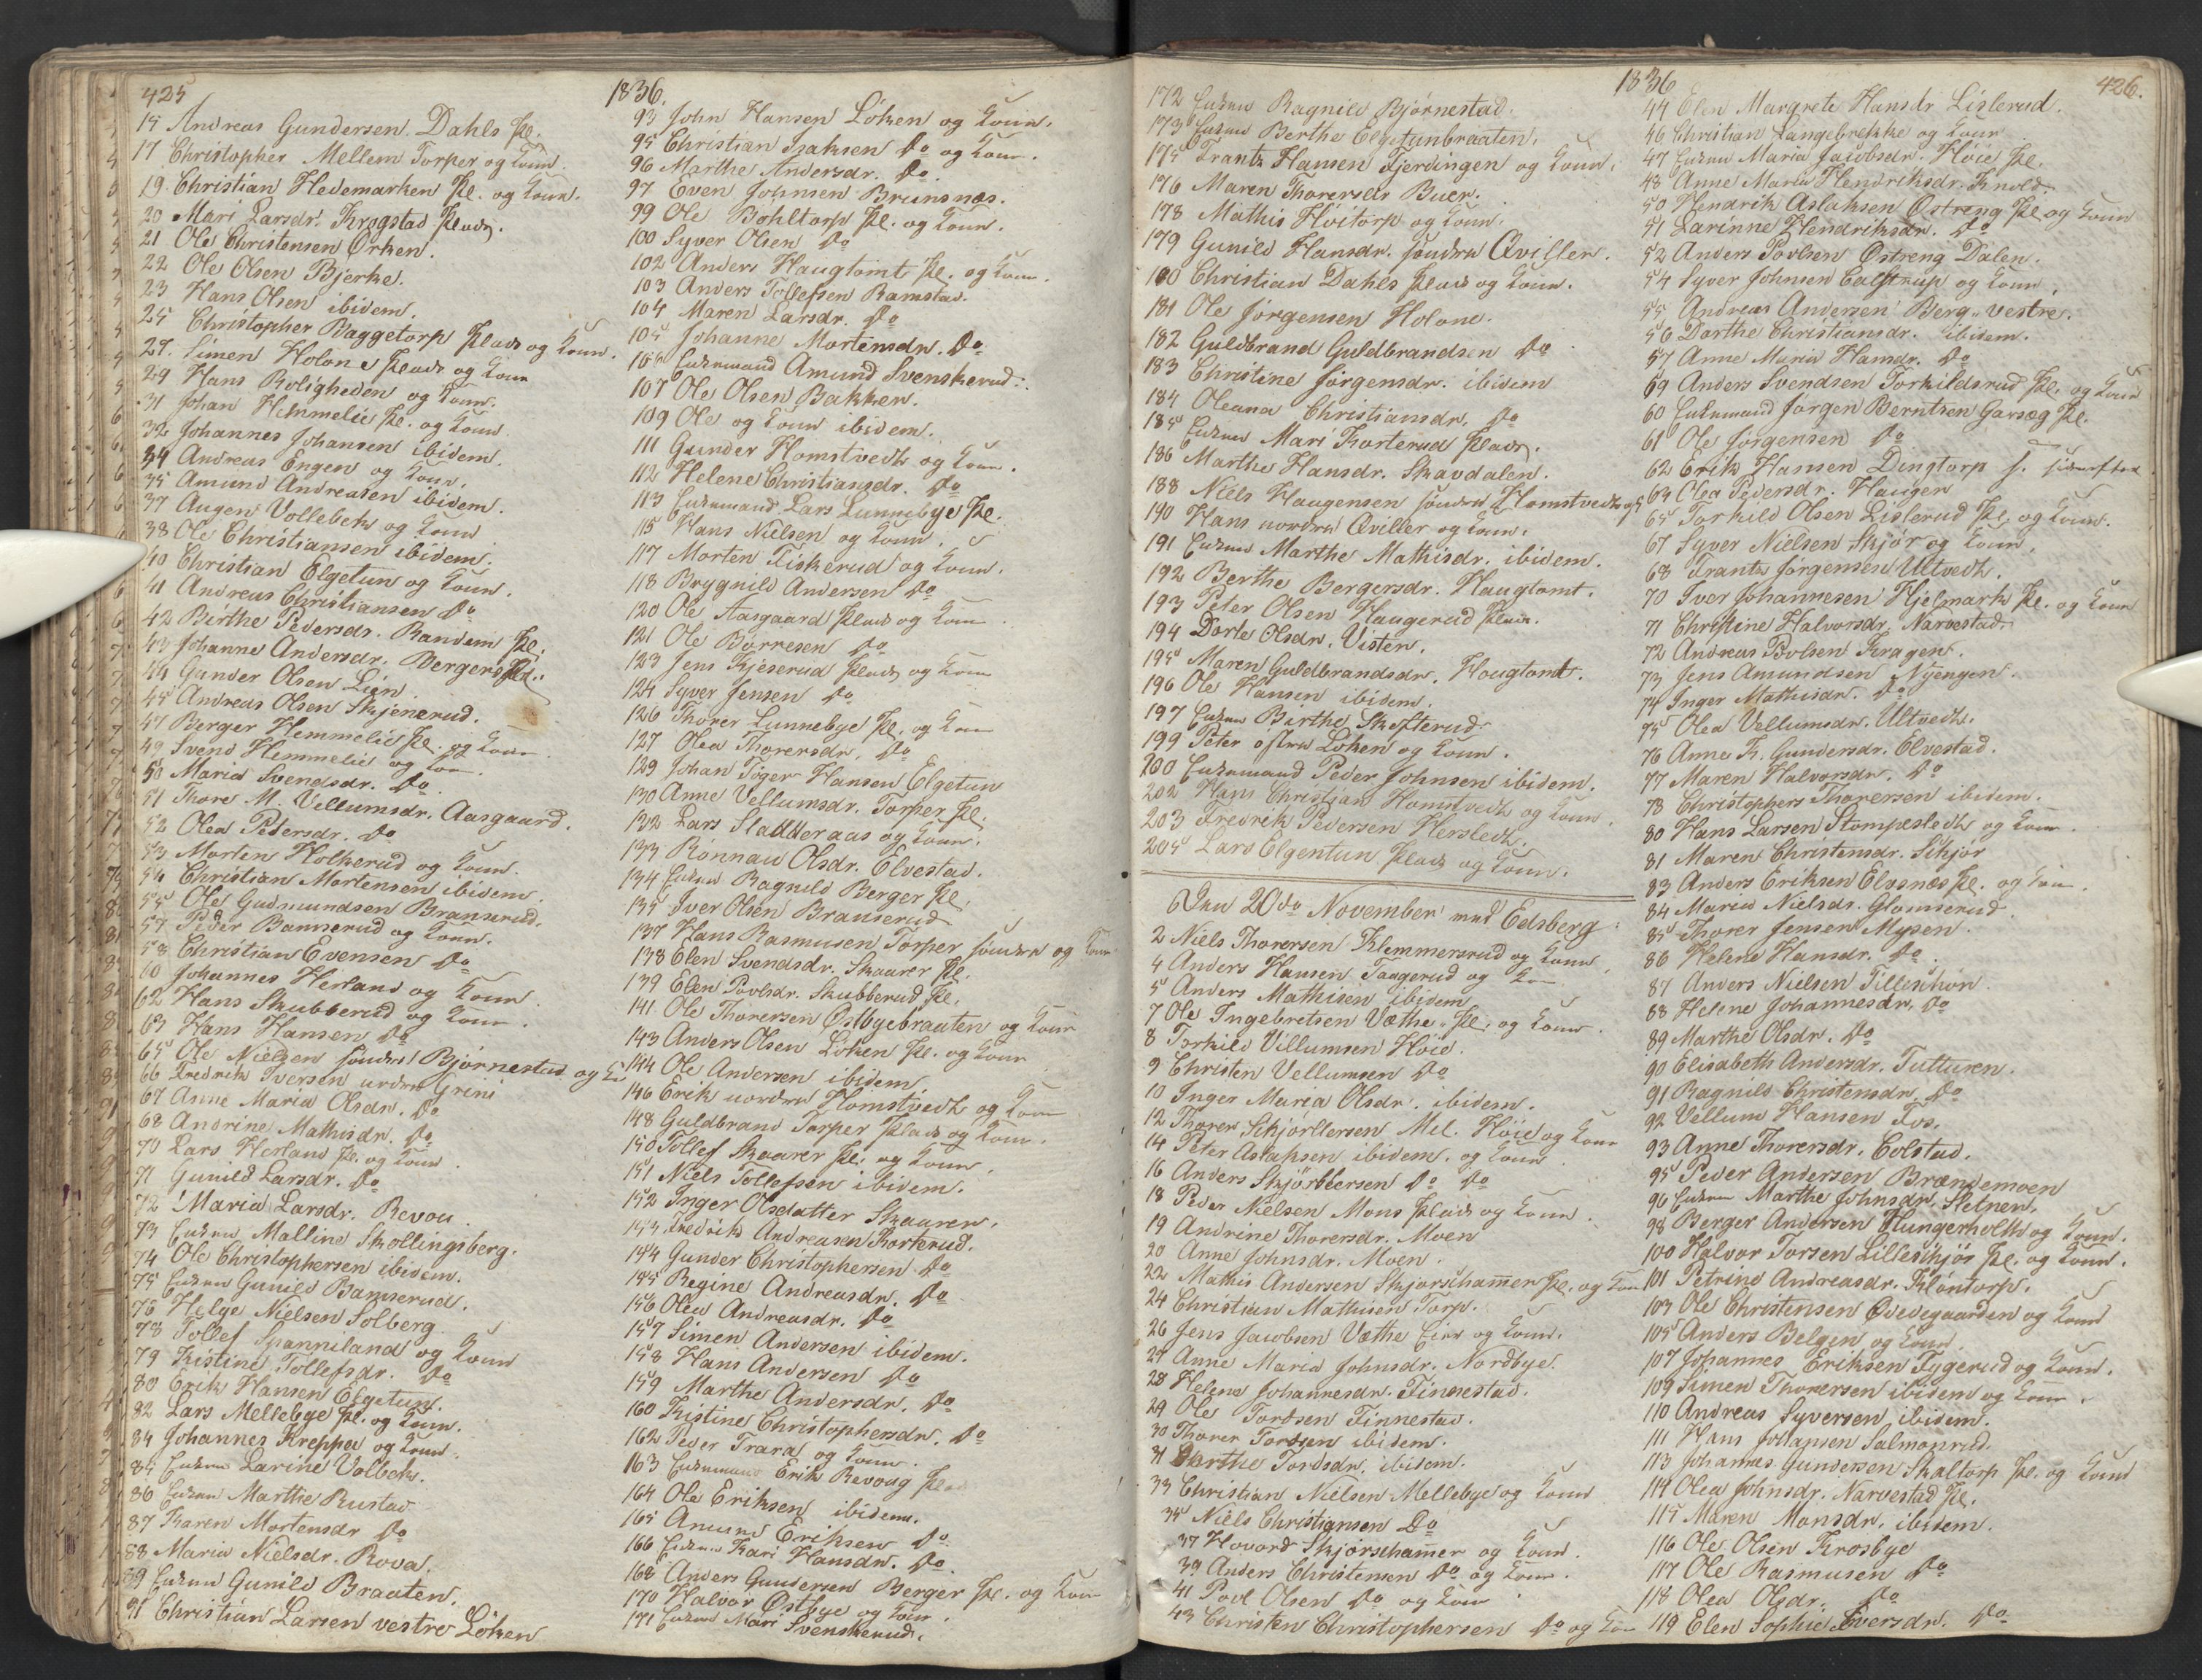 425
1836.
15 Andreas Gundersen Dahls Pl.
17 Christopher Mellem Torper og Konn.
19 Christian Hedemarken Pl. og Konn.
20 Mari Larsdr. Krogstad Plads.
21 Ole Christensen Ørken.
22 Ole Olsen Bjerke.
23 Hans Olsen ibidem.
25 Christopher Baggetorp Plads og Konn.
27. Simen Holone Plads og Konn
29 Hans Roligheden og Konn.
31 Johan Hemmelie Pl. og Konn
32 Johannes Johansen ibidem.
34 Andreas Engen og Konn.
35 Amund Andreasen ibidem.
37 Augen Vollebek og Konn
38 Ole Christiansen ibidem.
40 Christian Elgetun og Konn.
41 Andreas Christiansen Do
42 Birthe Pedersdr. Randem Pl.
43 Johanne Andersdr. Bergers Pl.
44 Gunder Olsen Lien
45 Andreas Olsen Skjenerud.
47 Berger Hemmelie Pl. og Konn
49 Svend Hemmelie og Kon.
50 Maria Svendsdr. Do.
51 Thore M. Vellumsdr. Aasgaard.
52 Olea Pedersdr. Do
53 Morten Holkerud og Konn.
54 Christian Mortensen ibidem.
55 Ole Gudmundsen Branserud.
57 Peder Bannerud og Konn.
58 Christian Evensen Do
60 Johannes Herland og Konn.
62 Hans Skubberud og Konn.
63 Hans Hansen Do
65 Ole Nielsen søndre Bjørnestad og K
66 Fredrik Iversen nordre Grini
67 Anne Maria Olsdr. Do
68 Andrine Mathisdr. Do
70 Lars Herland Pl. og Konn
71 Gunild Larsdr. Do
72 Maria Larsdr. Revou.
73 Enken Malline Skollingsberg.
74 Ole Christophersen ibidem.
75 Enken Gunild Bamserud.
76 Helge Nielsen Solberg
78 Tollef Spanniland og Konn
79 Kistine Tollefsdr. Do
80 Erik Hansen Elgetun.
82 Lars Mellebye Pl. og Konn.
84 Johannes Kreppa og Konn.
85 Enken Larine Volbek.
86 Enken Marthe Rustad
87 Karen Mortensdr Do
88 Maria Nielsdr. Rova.
89 Enken Gunild Braaten.
91 Christian Larsen vestre Løken
93 John Hansen Løken og Konn.
95 Christian Isaksen Do og Konn.
96 Marthe Andersdr. Do.
97 Even Johnsen Brunsnæs.
99 Ole Bøhltorp Pl. og Konn.
100 Syver Olsen Do
102 Anders Haugtomt Pl. og Konn.
103 Anders Tollefsen Ramstad.
104 Maren Larsdr. Do
105 Johanne Mortensdr. Do
106 Enkemand Amund Svenskerud.
107 Ole Olsen Bakken.
109 Ole og Konn ibidem.
111 Gunder Homstvedt og Konn.
112 Helene Christiansdr. Do
113 Enkemand Lars Lunnebye Pl.
115 Hans Nielsen og Konn.
117 Morten Fiskerud og Konn.
118 Brygnild Andersen Do
120 Ole Aasgaard Plads og Konn
121 Ole Børresen Do
123 Jens Kjeserud Plads og Konn
124 Syver Jensen Do
126 Thorer Lunnebye Pl. og Konn
127 Olea Thorersdr. Do
129 Johan Tøger Hansen Elgetun
130 Anne Vellumsdr. Torper Pl.
132 Lars Sladderaas og Konn.
133 Rønnau Olsdr. Elvestad.
134 Enken Ragnild Berger Pl.
135 Iver Olsen Branserud
137 Hans Rasmusen Torper søndre og Konn
138 Elen Svendsdr. Skaarer Pl.
139 Elen Povlsdr. Skubberud Pl.
141 Ole Thorersen Østbyebraaten og Konn
143 Anders Olsen Løken Pl. og Konn
144 Ole Andersen ibidem.
146 Erik nordre Homstvedt og Konn
148 Guldbrand Torper Plads og Konn.
150 Tollef Skaarer Pl. og Konn.
151 Niels Tollefsen ibidem.
152 Inger Olsdatter Skaarer.
153 Fredrik Andreasen Thorterud.
154 Gunder Christophersen Do
155 Regine Andreasdr. Do
156 Olea Andreasdr. Do
157 Simen Andersen ibidem.
158 Hans Andersen Do
159 Marthe Andersdr. Do
160 Kistine Christophersdr. Do
162 Peder Trara og Konn.
163 Enkemand Erik Revoug Plad
164 Ole Eriksen ibidem.
165 Amund Eriksen Do
166 Enken Kari Hansdr. Do.
168 Anders Gundersen Berger Pl. og Konn
170 Halvor Østbye og Konn.
171 Enken Mari Svenskerud.
1836
426.
172 Enken Ragnild Bjørnestad.
173 Enken Berthe Elgetunbraaten.
175 Frantz Hansen Fjerdingen og Konn.
176 Maren Thorersdr Buer.
178 Mathis Hvitorp og Konn.
179 Gunild Hansdr. søndre Qviller.
180 Christian Dahls Plads og Konn.
181 Ole Jørgensen Holone.
182 Guldbrand Guldbrandsen Do
183 Christine Jørgensdr. ibidem
184 Oleana Christiansdr. Do
185 Enken Mari Thorterud Plads.
186 Marthe Hansdr. Skavdalen.
188 Niels Haugensen søndre Homstvedt og K
190 Hans nordre Qviller og Konn.
191 Enken Marthe Mathisdr. ibidem.
192 Berthe Bergersdr. Haugtomt.
193 Peter Olsen Haugerud Plads.
194 Dorte Olsdr. Visten.
195 Maren Guldbrandsdr. Hougtomt.
196 Ole Hansen ibidem.
197 Enken Birthe Skofterud.
199 Peter østre Løken og Konn.
200 Enkemand Peder Johnsen ibidem.
202 Hans Christian Homstvedt og Konn.
203 Fredrik Pedersen Hersledt.
205 Lars Elgentun Plads og Konn.
Den 20de November med Edsberg.
2 Niels Thorersen Klemmersrud og Konn.
4 Anders Hansen Taagerud og Kon
5 Anders Mathisen ibidem
7 Ole Ingebretsen Væthe Pl. og Konn.
8 Torkild Villumsen Høie.
9 Christen Vellumsen Do
10 Inger Maria Olsdr. ibidem.
12 Thorer Schjørllersen Mel. Høie og Konn
14 Peter Aslaksen ibidem. og Konn
16 Anders Skjørbbersen Do Do
18 Peder Nielsen Mons Plads og Konn.
19 Andrine Thorersdr. Moen
20 Anne Johnsdr. Moen.
22 Mathis Andersen Skjørschammer Pl. og Konn
24 Christian Mathisen Torp.
26 Jens Jacobsen Væthe Eier og Konn.
27 Anne Maria Johnsdr. Nordbye.
28 Helene Johannesdr. Finnestad.
29 Ole Tordsen Finnestad.
30 Thorer Tordsen ibidem.
31 Dorthe Tordsdr. ibidem.
33 Christian Nielsen Mellebye og Konn
35 Niels Christiansen Do
37 Hovard Skjørschammer og Konn.
39 Anders Christensen Do og Konn.
41 Povl Olsen Do og Konn
43 Christen Christophersen Do og Kon
44 Elen Margrete Hansdr Lislerud.
46 Christian Langebrekke og Konn
47 Enken Maria Jacobsdr. Høie Pl.
48 Anne Maria Hendriksdr. Knold.
50 Hendrik Aslaksen Østreng Pl. og Konn
51 Larinne Hendriksdr. Do
52 Anders Povlsen Østreng Dalen.
54 Syver Johnsen Calstrup og Konn.
55 Andreas Andersen Berg vestre.
56 Dorthe Christiansdr. ibidem.
57 Anne Maria Hansdr. Do
59 Anders Svendsen Torkildsrud Pl. og Konn
60 Enkemand Jørgen Berntsen Garseg Pl.
61 Ole Jørgensen Do
62 Erik Hansen Dingtorp
63 Olea Pedersdr. Haugen
65 Torkild Olsen Lislerud Pl. og Konn.
67 Syver Nielsen Skjør og Konn.
68 Frantz Jørgensen Ultvedt.
70 Iver Johannesen Hjelmark Pl. og Konn
71 Christine Halvorsdr. Narvestad.
72 Andreas Povlsen Kragen.
73 Jens Amundsen Nyengen.
74 Inger Mathisdr. Do
75 Olea Vellumsdr. Ultvedt.
76 Anne K. Gundersdr. Elvestad.
77 Maren Halvorsdr. Do
78 Christophers Thorersen ibidem.
80 Hans Larsen Stompesledt og Konn.
81 Maren Christensdr. Schjør
83 Anders Eriksen Elvsnæs Pl. og Konn.
84 Maria Nielsdr. Glomserud.
85 Thorer Jensen Mysen.
86 Helene Hansdr. Do.
87 Anders Nielsen Lilleschør
88 Helene Johannesdr. Do
89 Marthe Olsdr. Do
90 Elisabeth Andersdr. Tutturen.
91 Ragnild Christensdr. Do
92 Vellum Hansen Fos.
93 Anne Thorersdr. Colstad.
95 Peder Andersen Brændemoen
96 Enken Marthe Johnsdr. Sletner.
98 Berger Andersen Hungerholt og Konn.
100 Halvor Torsen Lilleschjør Pl. og Konn.
101 Petrine Andreasdr. Kløntorp.
103 Ole Christensen Ødedegaarden og Konn
105 Anders Belgen og Konn.
107 Johannes Eriksen Tygerud og Konn.
109 Simen Thorersen ibidem og Konn.
110 Andreas Syversen ibidem.
111 Hans Johansen Salmonrud.
113 Johannes Gundersen Skaltorp Pl. og Konn
114 Olea Johnsdr. Narvestad Pl.
115 Maren Monsdr. ibidem.
116 Ole Olsen Krosbye
117 Ole Rasmusen Do
118 Olea Olsdr. Do
119 Elen Sophie Iversdr. Do